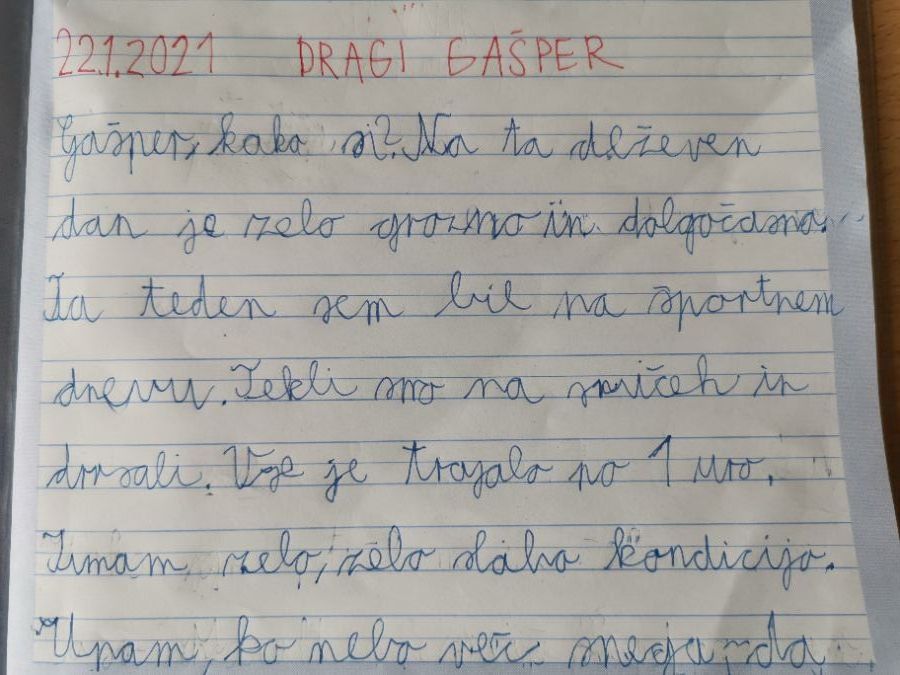 22.1.2021 DRAGI GAŠPER
Gašper, kako si? Na ta deževen
dan je zelo grozno in dolgočasno.
Ta teden sem bil na športnem
dnevu. Tekli smo na smučeh in
drsali. Vse je trajalo po 1 uro.
Imam zelo, zelo slabo kondicijo.
Upam, ko nebo več snega, da